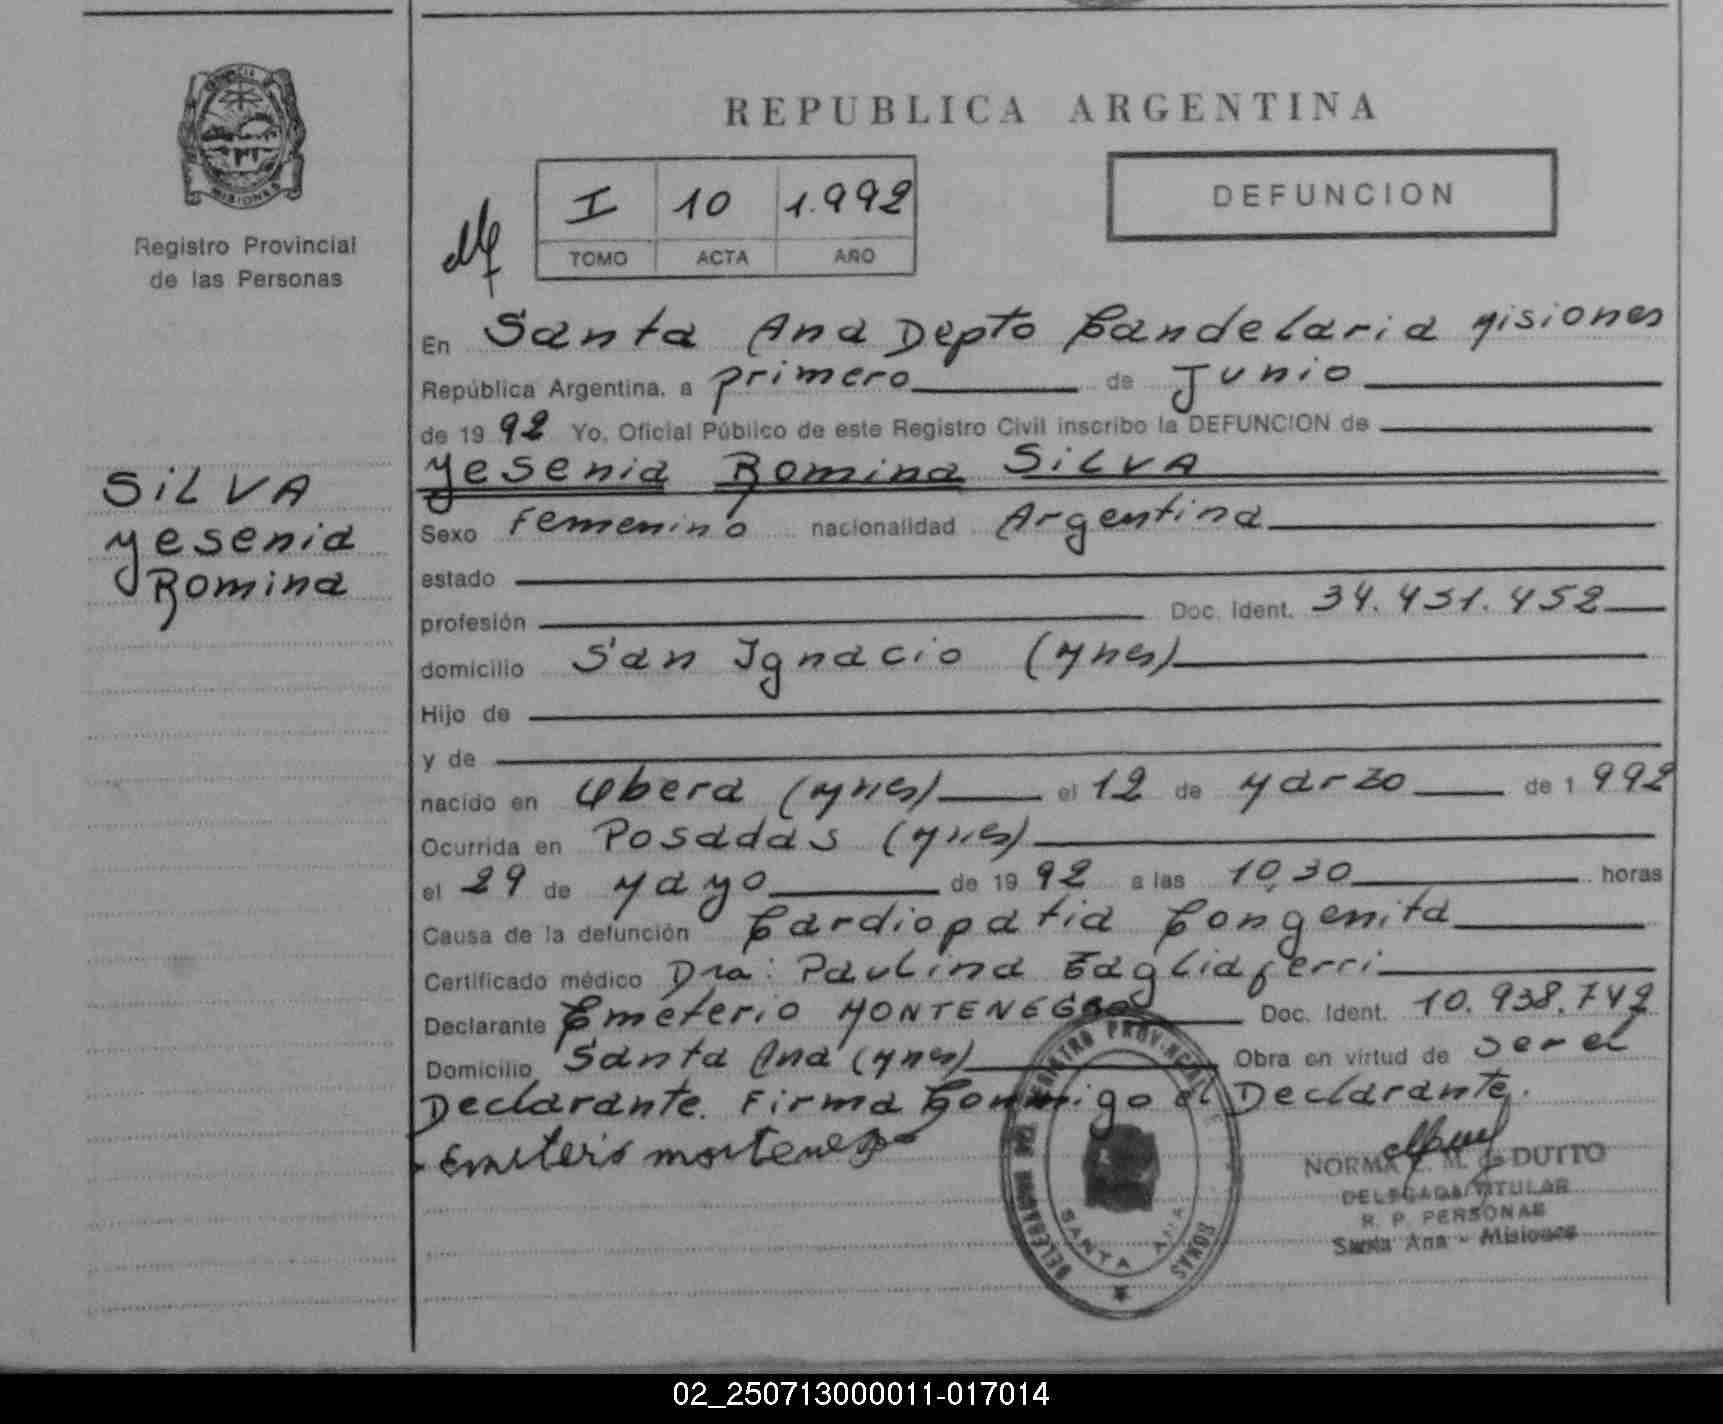 PROVINCIA DE
MISIONES
Registro Provincial
de las Personas
SILVA
Yesenia
Romina
REPUBLICA ARGENTINA
I 10 1.992
TOMO ACTA AÑO
DEFUNCION
En Santa Ana Depto Candelaria Misiones
República Argentina, a primero de Junio
de 1992 Yo, Oficial Público de este Registro Civil inscribo la DEFUNCION de
Yesenia Romina SILVA
Sexo Femenino nacionalidad Argentina
estado
profesión Doc. Ident. 34.431.452
domicilio San Ignacio (Mnes)
Hijo de
y de
nacido en Obera (Mnes) el 12 de Marzo de 1992
Ocurrida en Posadas (Mnes)
el 29 de Mayo de 1992 a las 10,30 horas
Causa de la defunción Cardiopatia Congenita
Certificado médico Dra: Paulina Tagliaferri
Declarante Emeterio MONTENEGRO Doc. Ident. 10.938.742
Domicilio Santa Ana (Mnes) Obra en virtud de ser el
Declarante. Firma Conmigo el Declarante.
Emeterio montenegro
REGISTRO PROVINCIAL DE
SANTA ANA
NORMA M. de DUTTO
DELEGADA TITULAR
R. P. PERSONAS
Santa Ana - Misiones
02_250713000011-017014